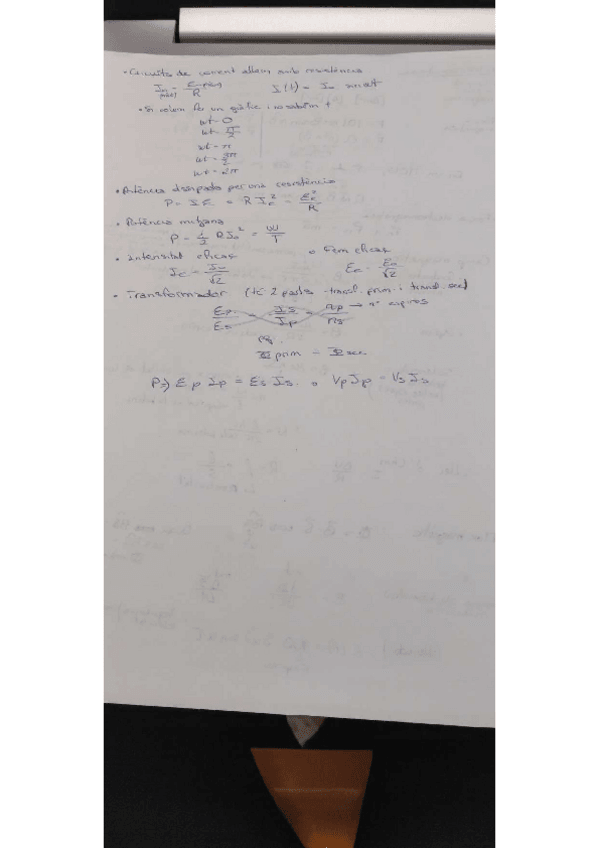 • Circuits de corrent altern amb resistència
I₀ = ε màx / R (màx) I(t) = I₀ sin ωt
• Si volem fer un gràfic i no sabem t
ωt = 0
ωt = π/2
ωt = π
ωt = 3π/2
ωt = 2π
• Potència dissipada per una resistència
P = I ε = R I_e² = ε_e² / R
• Potència mitjana
P = 1/2 R I₀² = W/T
• Intensitat eficaç o fem eficaç
I_e = I₀/√2 ε_e = ε₀/√2
• Transformador (té 2 parts - transf. prim. i transf. sec)
εp/εs = Is/Ip = np/ns → nº espires
pq.
Φ prim = Φ sec.
P=) εp Ip = εs Is o Vp Ip = Vs Is